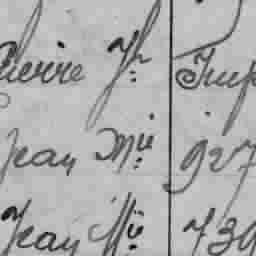 Pierre Jh
Jean Mie 927
Jean Mie 739